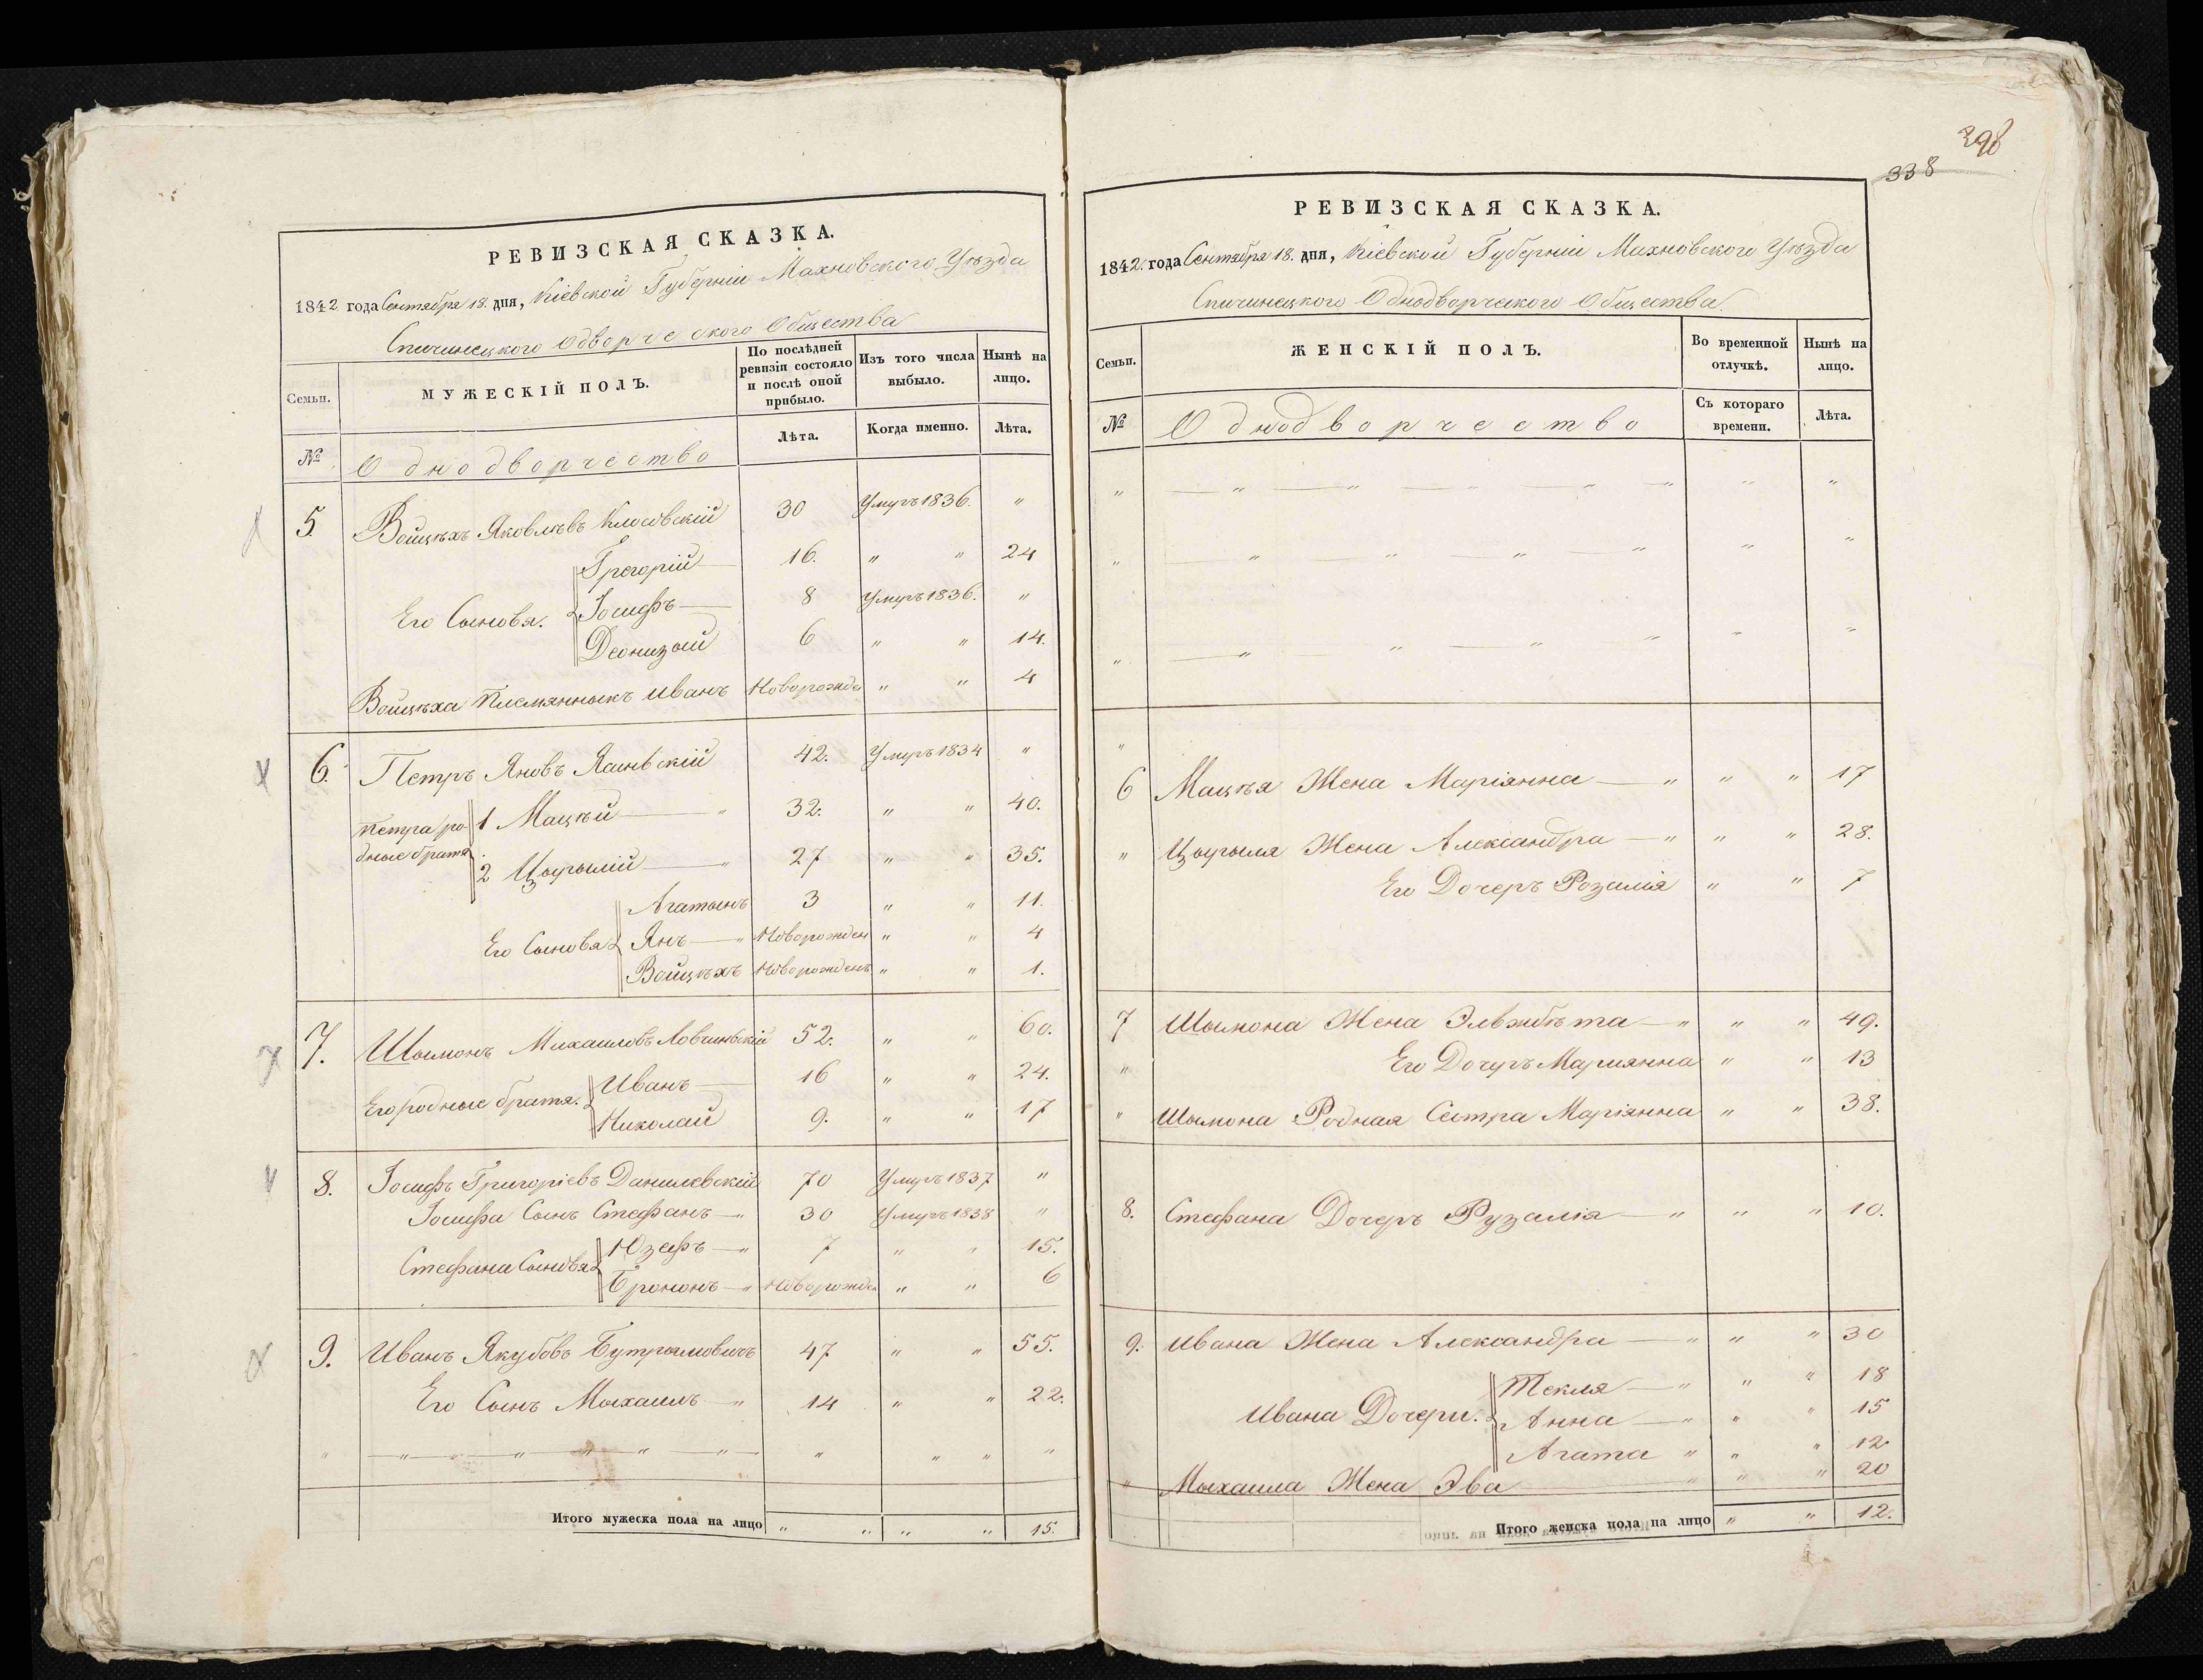 398
338
РЕВИЗСКАЯ СКАЗКА.
1842 года Сентября 18. дня, Кіевской Губерніи Махновского Уѣзда
Спичинецкого Одворческого Общества
Семьи.
МУЖЕСКІЙ ПОЛЪ.
По послѣдней ревизіи состояло и послѣ оной прибыло.
Изъ того числа выбыло.
Нынѣ на лицо.
№
Однодворчество
Лѣта.
Когда именно.
Лѣта.
5. Войцѣхъ Яковлѣвъ Клосовскій 30 Умуръ 1836. "
Грегорій 16. " " 24
Его Сыновя. Іосифъ 8 Умуръ 1836. "
Деонизый 6 " " 14.
Войцѣха Племянныкъ Иванъ Новорожде " " 4
6. Петръ Яновъ 42. Умуръ 1834 "
Петра родные братя 1 Мацѣй " 32. " " 40.
2 Цырылій " 27 " " 35.
Агатынъ 3 " " 11.
Его Сыновя Янъ " Новорожден " " 4
Войцѣхъ Новорожденъ " " 1.
7. Шымонъ Михаиловъ Ловчиньскій 52. " " 60.
Иванъ 16 " " 24.
Его родные братя. Николай 9. " " 17
8. Іосифъ Григоріевъ Данилевскій 70 Умуръ 1837 "
Іосифа Сынъ Стефанъ " 30 Умуръ 1838 "
Стефана Сыновя Юзефъ " 7 " " 15.
" Новорожде " " 6
9. Иванъ Якубовъ Бутрымовичъ 47 " " 55.
Его Сынъ Мыхаилъ " 14 " " 22.
" " " " " " " " " " "
Итого мужеска пола на лицо " " " " 15.
РЕВИЗСКАЯ СКАЗКА.
1842. года Сентября 18. дня, Кіевской Губерніи Махновского Уѣзда
Спичинецкого Однодворческого Общества
Семьи.
ЖЕНСКІЙ ПОЛЪ.
Во временной отлучкѣ.
Нынѣ на лицо.
№
Однодворчество
Съ котораго времени.
Лѣта.
" " " " " " " "
" " " " " " "
" " " " " " "
"
6 Мацѣя Жена Маріянна " " " 17
" Цырыля Жена Александра " " " 28.
Его Дочеръ Розалія " " 7
7 Шымона Жена Эльжбѣта " " " 49.
" Его Дочуръ Мариянна " " 13
" Шымона Родная Сестра Маріянна " " 38.
8. Стефана Дочеръ Рузалія " " " 10.
9. Ивана Жена Александра " " " 30
Текля " " " 18
Ивана Дочери. Анна " " " 15
Агата " " " 12
" Мыхаила Жена Эва " " " 20
Итого женска пола на лицо " " 12.